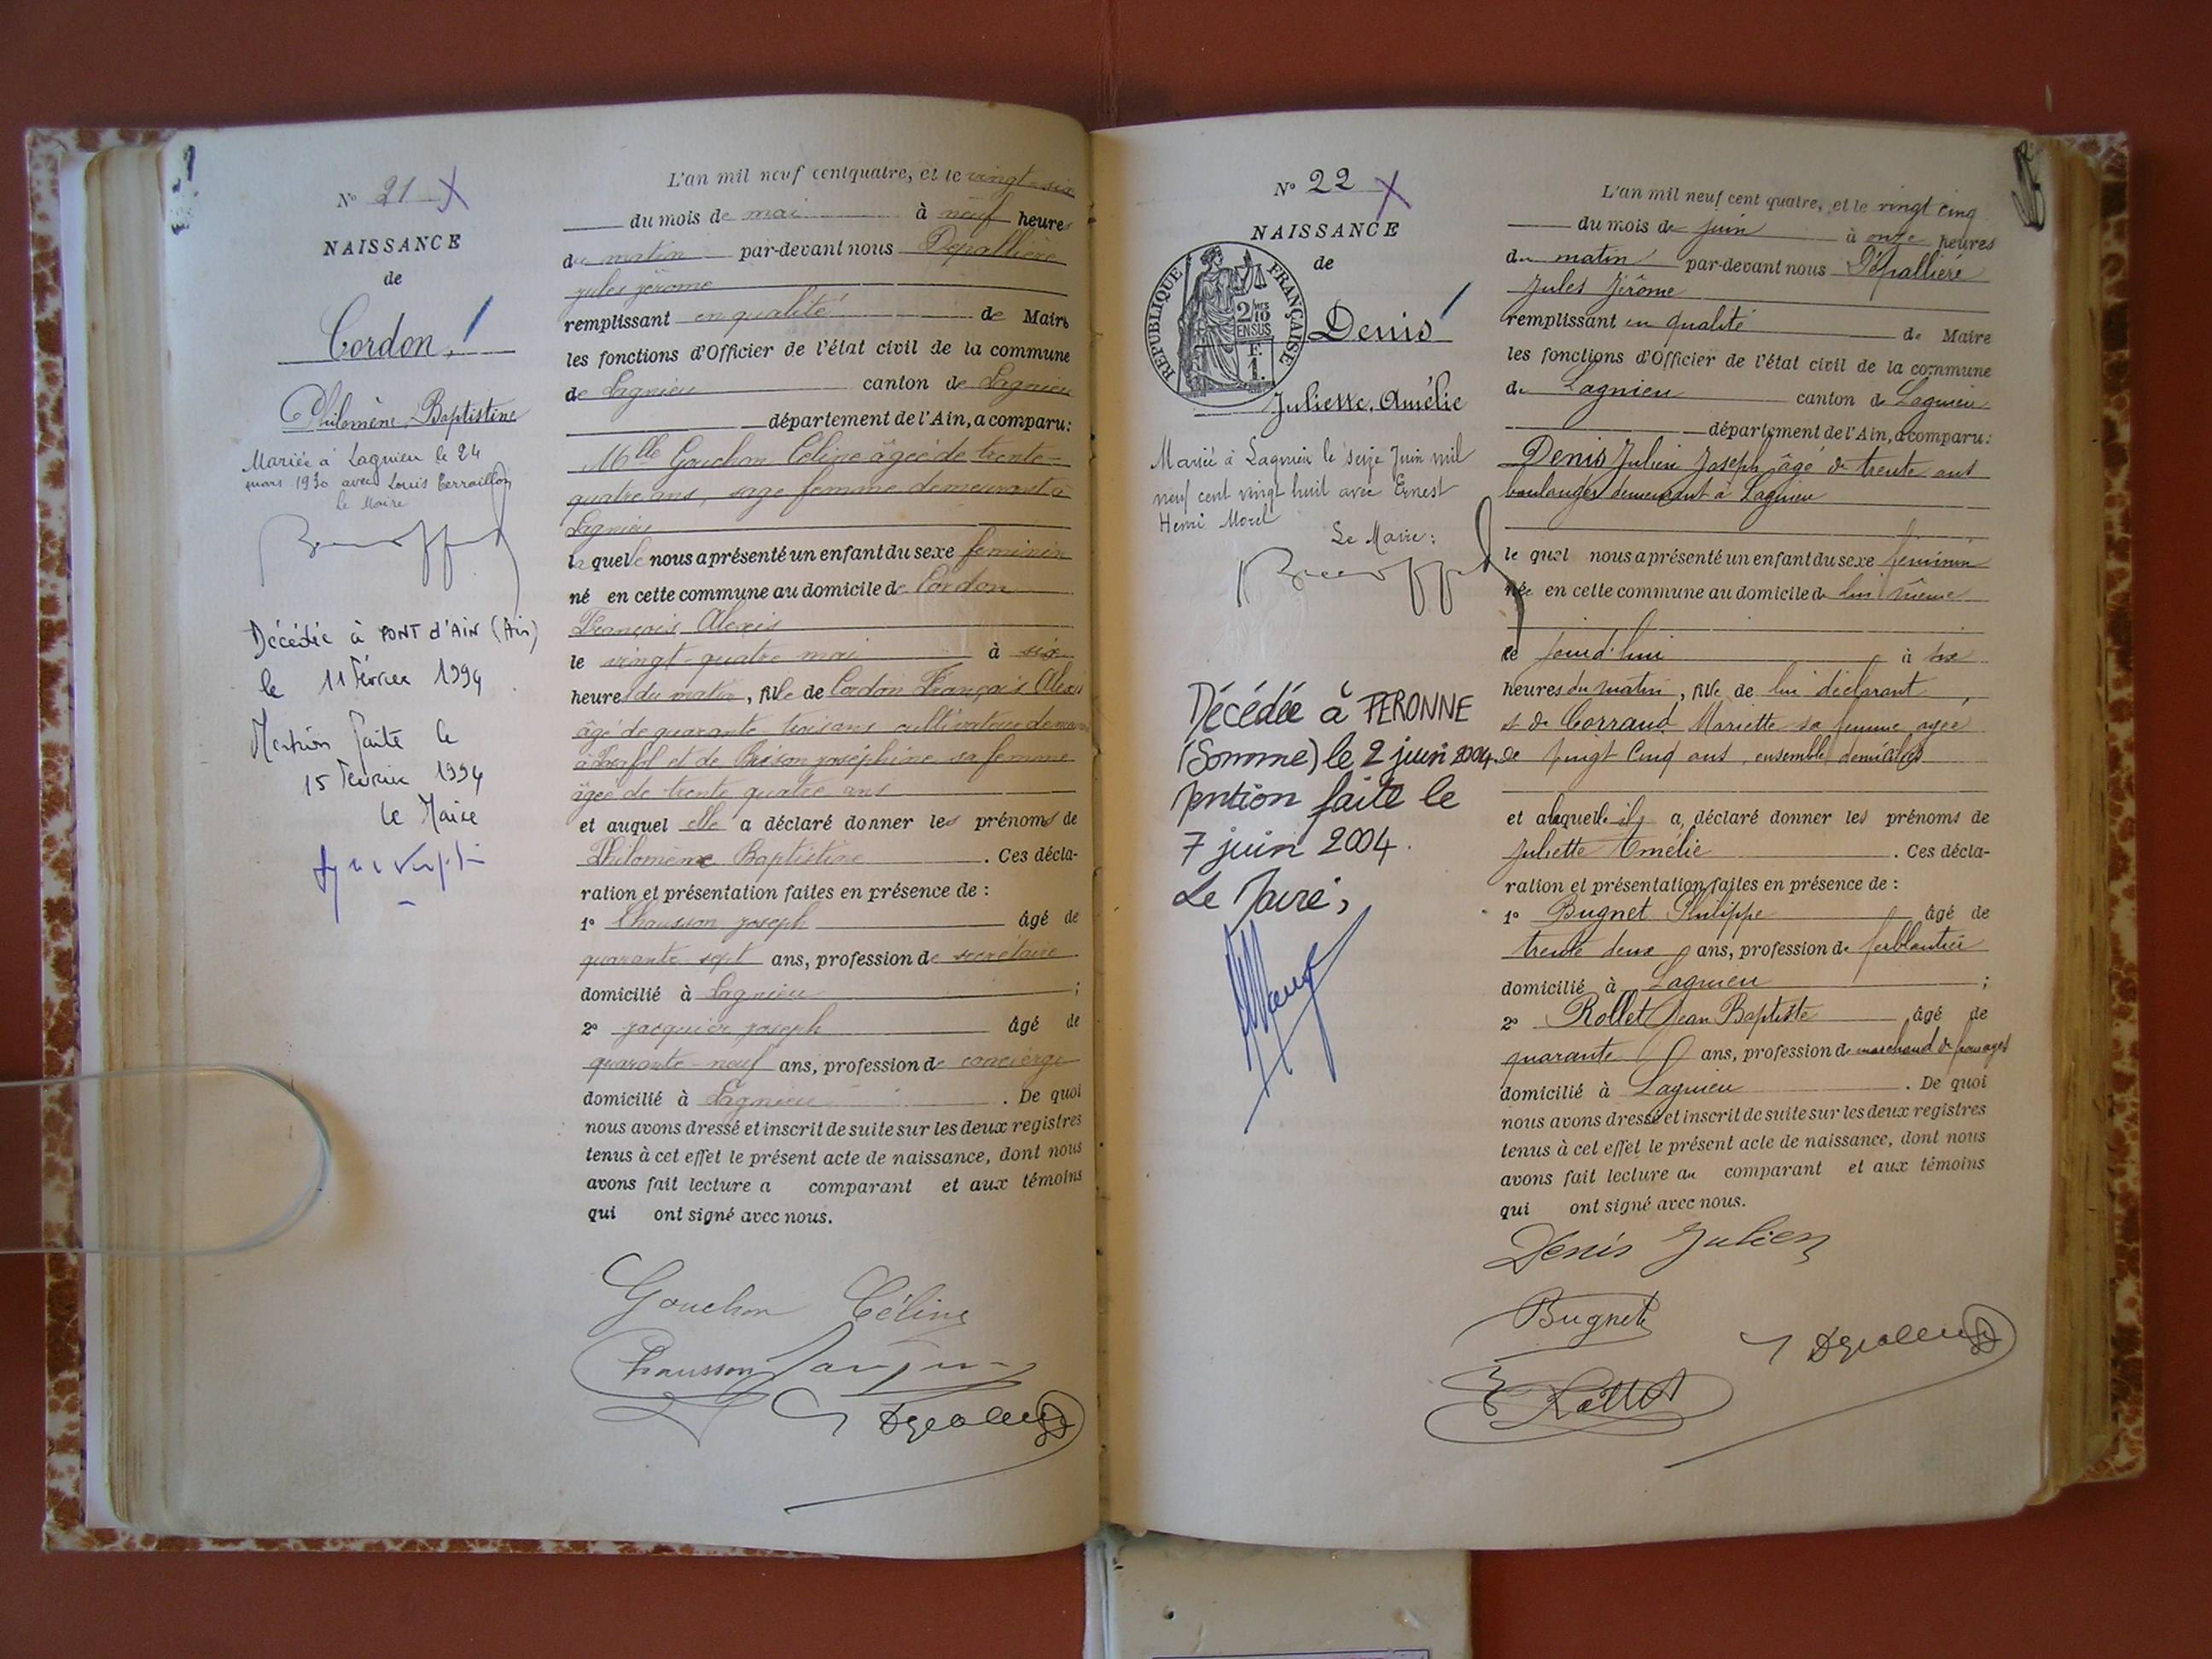 N° 21 X
NAISSANCE
de
Cordon
Philomène Baptistine
Mariée à Lagnieu le 24
mars 1930 avec Louis Terraillon
Le Maire
Décédée à PONT d'AIN (Ain)
le 11 Février 1994
Mention faite le
15 Février 1994
le Maire
L'an mil neuf cent quatre, et le vingt-six
du mois de mai à neuf heures
du matin par-devant nous Dépallière
Jules Jérôme
remplissant en qualité de Maire
les fonctions d'Officier de l'état civil de la commune
de Lagnieu canton de Lagnieu
département de l'Ain, a comparu:
Mlle Gouchon Céline âgée de trente-
quatre ans, sage femme demeurant à
Lagnieu
laquelle nous a présenté un enfant du sexe féminin
né en cette commune au domicile de Cordon
François Alexis
le vingt-quatre mai à six
heures du matin, fille de Cordon François Alexis
âgé de quarante trois ans cultivateur
et de joséphine sa femme
âgée de trente quatre ans
et auquel elle a déclaré donner les prénoms de
Philomène Baptistine. Ces décla-
ration et présentation faites en présence de :
1° Chausson joseph âgé de
quarante sept ans, profession de secrétaire
domicilié à Lagnieu ;
2° jacquier joseph âgé de
quarante-neuf ans, profession de concierge
domicilié à Lagnieu. De quoi
nous avons dressé et inscrit de suite sur les deux registres
tenus à cet effet le présent acte de naissance, dont nous
avons fait lecture a comparant et aux témoins
qui ont signé avec nous.
Gouchon Céline
Chausson
N° 22 X
NAISSANCE
de
RÉPUBLIQUE FRANÇAISE
2/10
EN SUS
F.
1.
Denis
Juliette, Amélie
Mariée à Lagnieu le seize Juin mil
neuf cent vingt huit avec Ernest
Henri Morel
Le Maire:
Décédée à PERONNE
(Somme) le 2 juin 2004.
Mention faite le
7 juin 2004.
Le Maire,
L'an mil neuf cent quatre, et le vingt cinq
du mois de juin à onze heures
du matin par-devant nous Dépallière
Jules Jérôme
remplissant en qualité de Maire
les fonctions d'Officier de l'état civil de la commune
de Lagnieu canton de Lagnieu
département de l'Ain, a comparu:
Denis Julien Joseph âgé de trente ans
boulanger demeurant à Lagnieu
le quel nous a présenté un enfant du sexe féminin
née en cette commune au domicile de lui même
ce jourd'hui à six
heures du matin, fille de lui déclarant,
et de Corraud Mariette sa femme agée
de vingt cinq ans, ensemble domiciliés
et alaquelle il a déclaré donner les prénoms de
Juliette Amélie. Ces décla-
ration et présentation faites en présence de :
1° Bugnet Philippe âgé de
trente deux ans, profession de ferblantier
domicilié à Lagnieu ;
2° Rollet Jean Baptiste âgé de
quarante ans, profession de marchand de fourages
domicilié à Lagnieu. De quoi
nous avons dressé et inscrit de suite sur les deux registres
tenus à cet effet le présent acte de naissance, dont nous
avons fait lecture au comparant et aux témoins
qui ont signé avec nous.
Denis Julien
Bugnet
Rollet